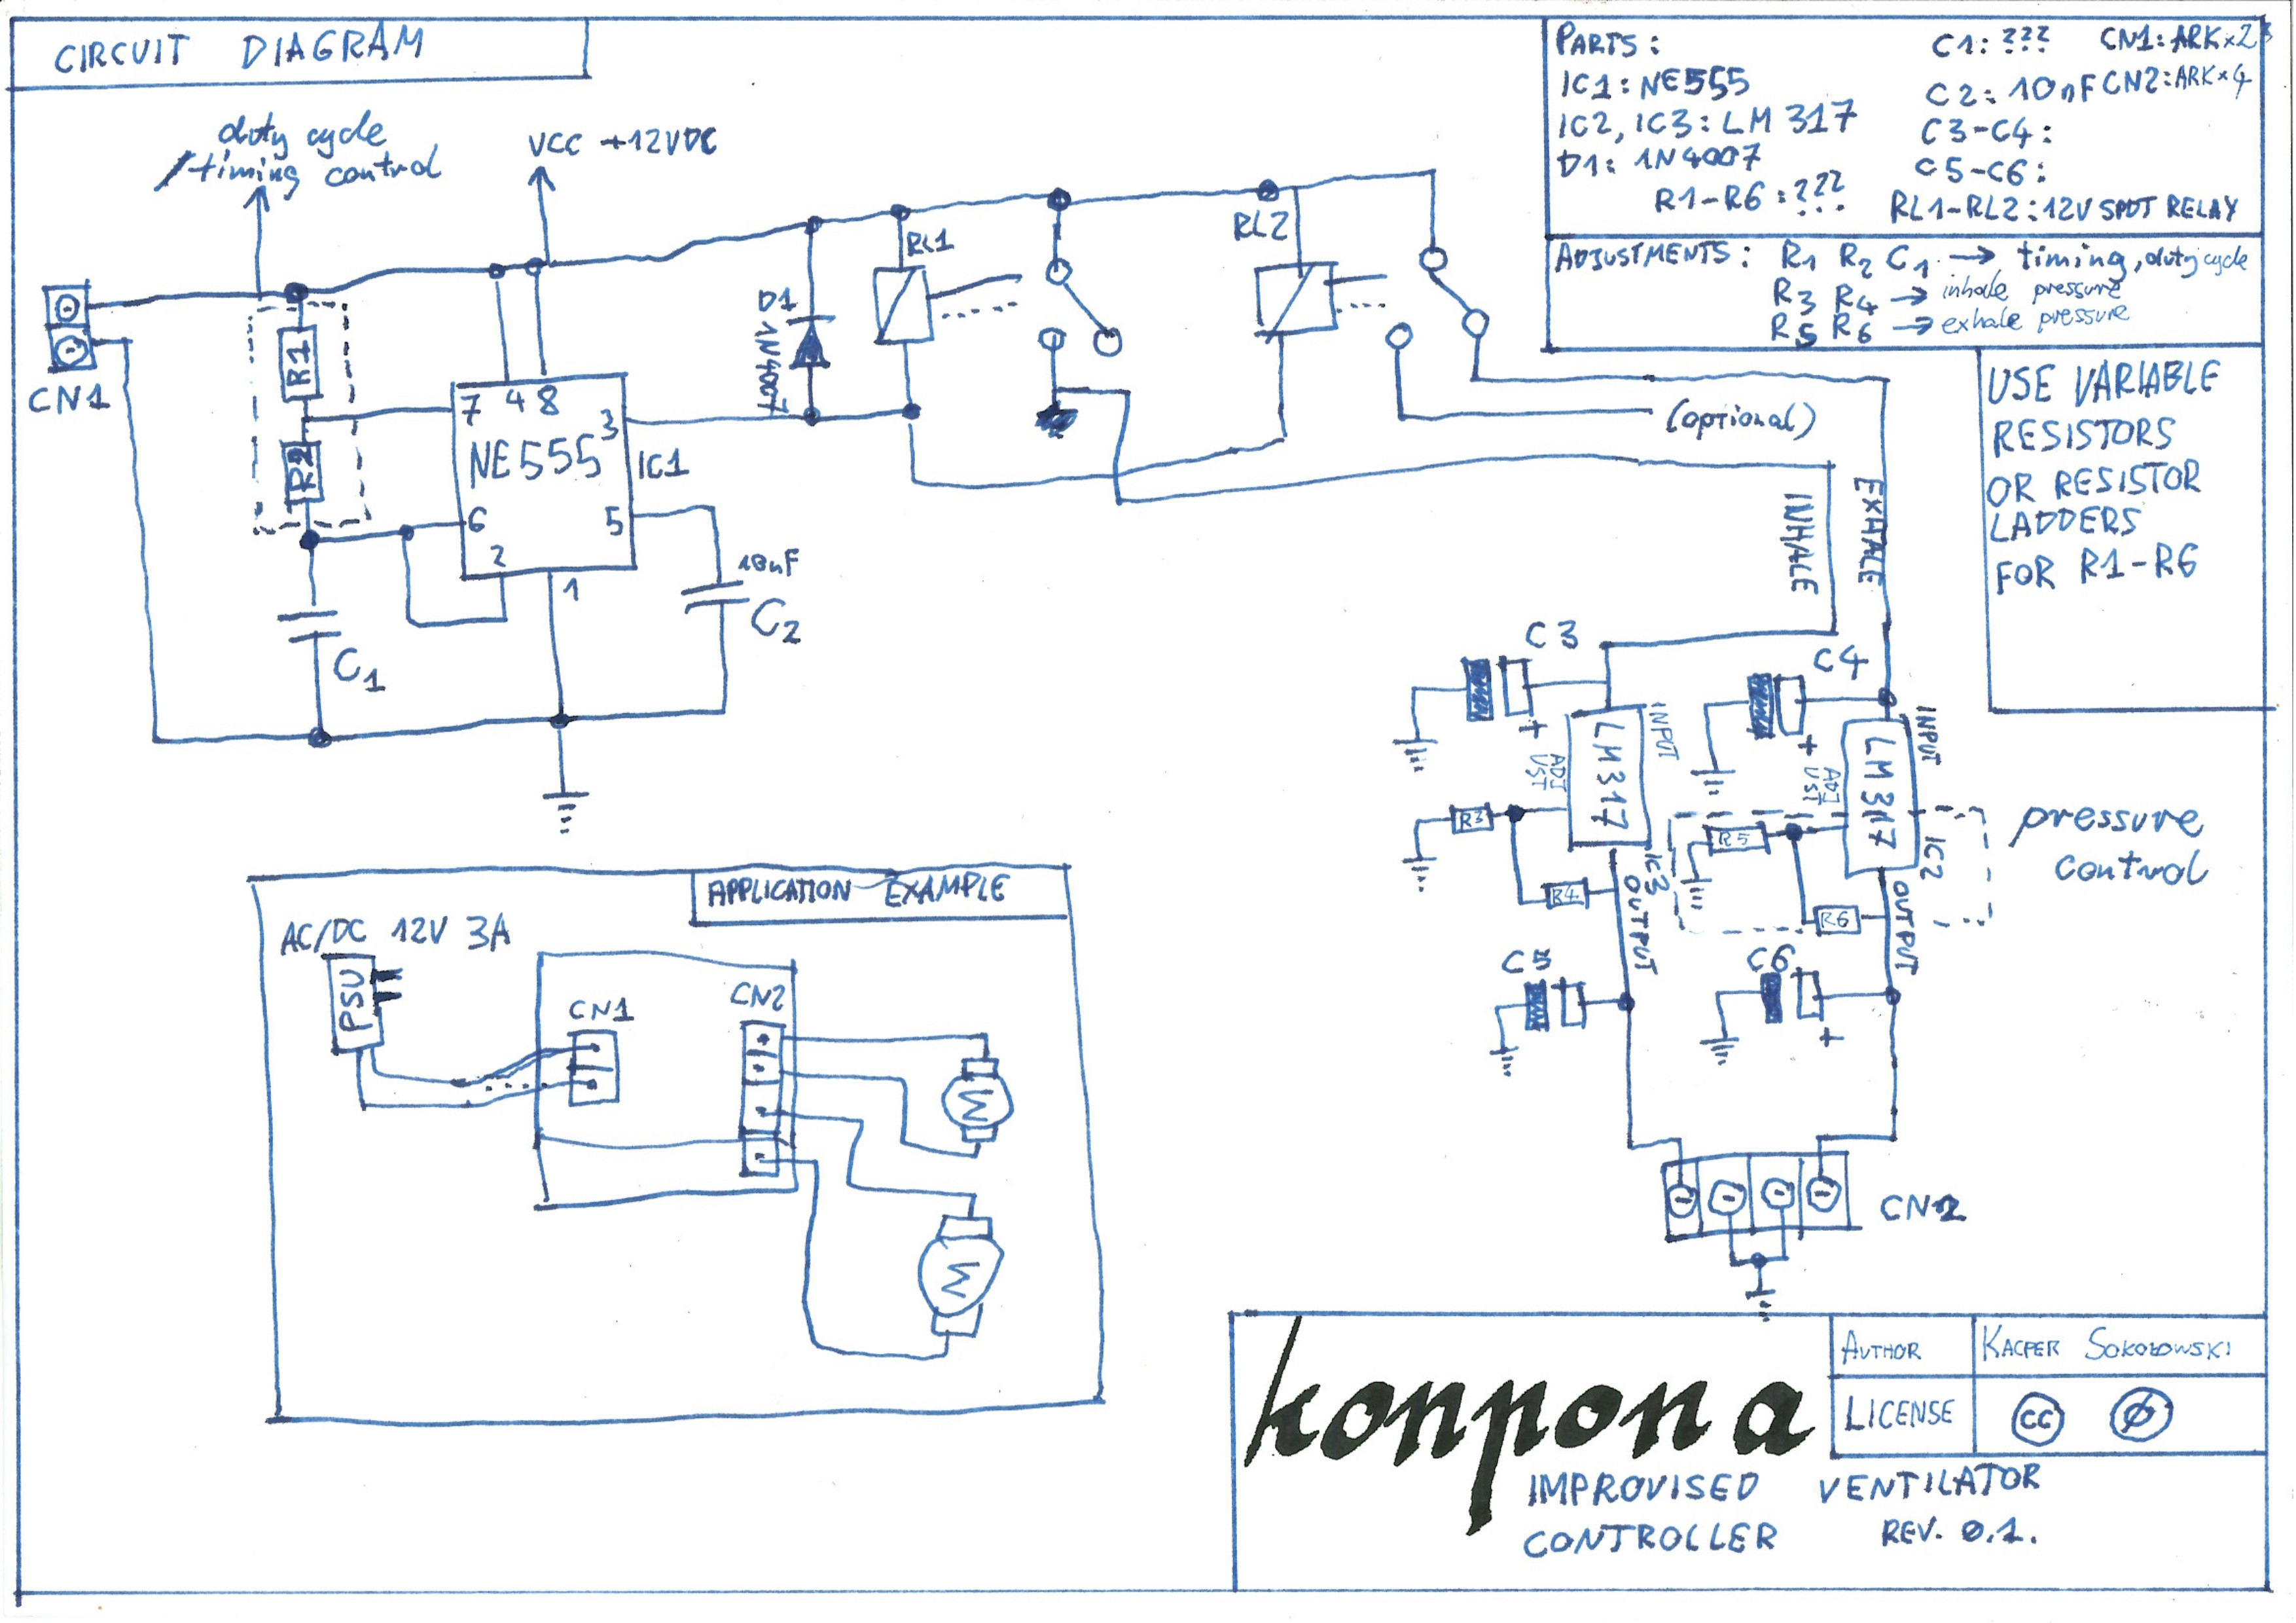 CIRCUIT DIAGRAM
PARTS:
IC1: NE555
IC2, IC3: LM 317
D1: 1N4007
R1-R6: ???
C1: ???
C2: 10nF
C3-C4:
C5-C6:
RL1-RL2: 12V SPDT RELAY
CN1: ARK×2
CN2: ARK×4
ADJUSTMENTS: R1 R2 C1 → timing, duty cycle
R3 R4 → inhale pressure
R5 R6 → exhale pressure
USE VARIABLE
RESISTORS
OR RESISTOR
LADDERS
FOR R1-R6
duty cycle
/timing control
VCC +12VDC
CN1
R1
R2
C1
7
4
8
3
NE555
IC1
6
5
2
1
10nF
C2
D1
1N4007
RL1
RL2
(optional)
INHALE
EXHALE
C3
+
LM317
INPUT
ADJ
UST
R3
R4
IC3
OUTPUT
C5
C4
+
LM317
INPUT
ADJ
UST
R5
R6
IC2
OUTPUT
C6
+
pressure
control
CN2
APPLICATION EXAMPLE
AC/DC 12V 3A
PSU
CN1
CN2
M
M
konpona
IMPROVISED VENTILATOR
CONTROLLER REV. 0.1.
AUTHOR KACPER SOKOŁOWSKI
LICENSE cc